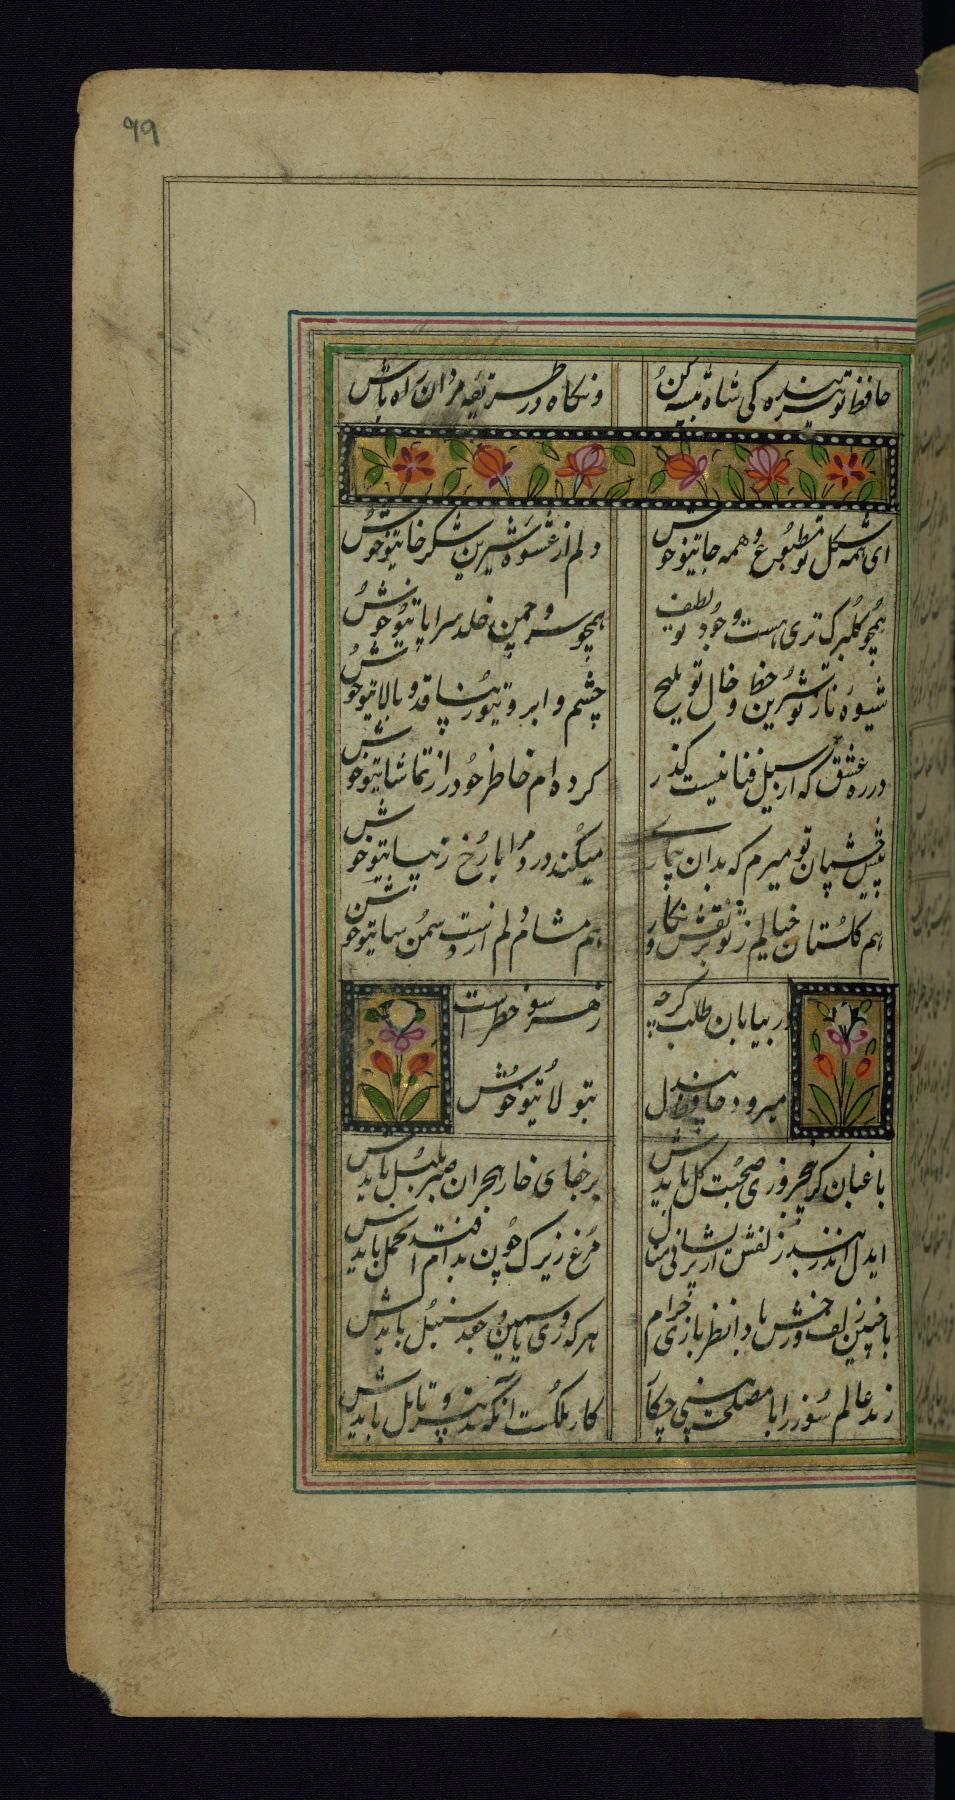 ۹۹
حافظ تو بنده کی شاه پیشه کن
ونگاه در طریقه مردان راه باش
ای همه شکل تو مطبوع و همه جاتیو خوش
دلم از عشوه شیرین شکر خاتیو خوش
همچو گلبرک تری هست وجود تو لطیف
همچو سرو چمن خلد سراپاتیو خوش
شیوه ناز تو شیرین خط و خال تو ملیح
چشم و ابرو تیو زیبا قد و بالاتیو خوش
در ره عشق که از سیل فنا نیست گذر
کرده ام خاطر خود را ز تماشاتیو خوش
پیش چشمان تو میرم که بدان بیماری
میکند درد مرا با رخ زیباتیو خوش
هم گلستان خیالم ز تو پر نقش و نگار
هم مشام دلم از سمن ساتیو خوش
در بیابان طلب گرچه
زهر سو خطر است
میرود حافظ بیدل
بتو لاتیو خوش
باغبان گر پنج روزی صحبت گل بایدش
بر جفای خار هجران صبر بلبل بایدش
ایدل اندر بند زلفش از پریشانی منال
مرغ زیرک چون بدام افتد تحمل بایدش
با چنین زلف و رخش بادا نظربازی حرام
هر که روی یاسمین و جعد سنبل بایدش
رند عالم سوز را با مصلحت بینی چکار
کار ملکست آنکه تدبیر و تامل بایدش